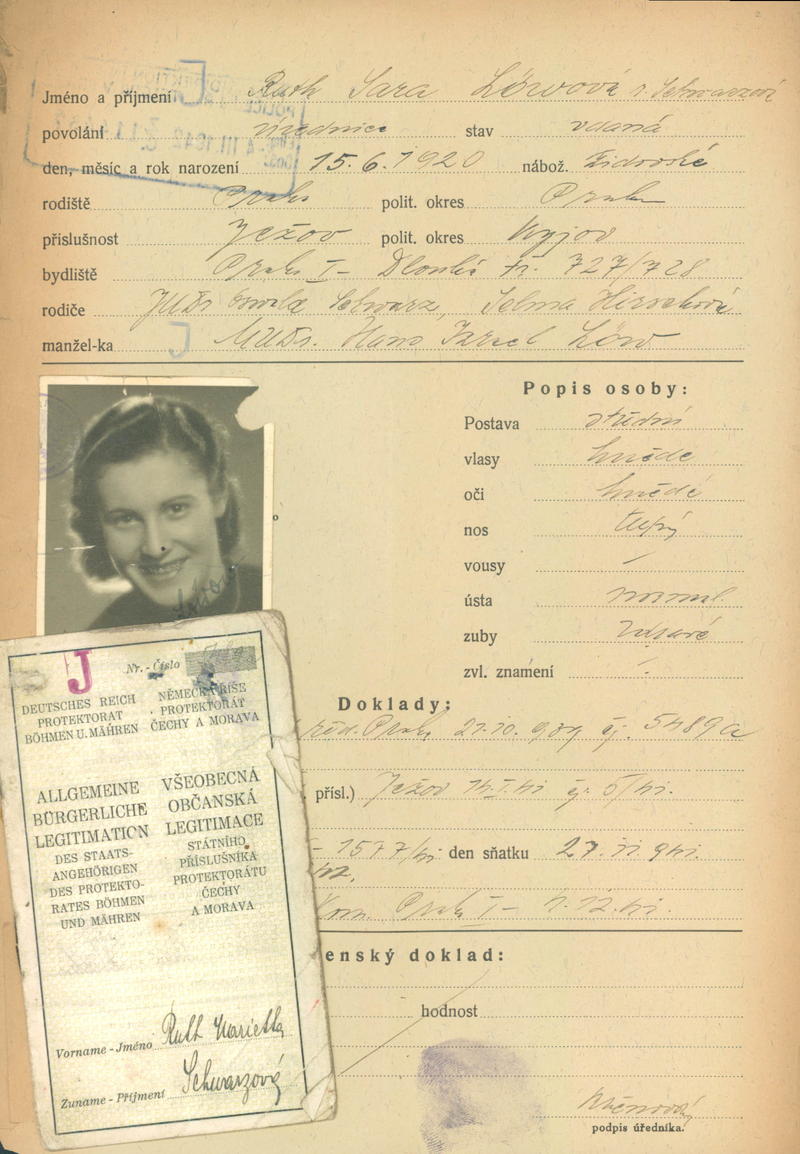 Jméno a příjmení Ruth Sara Löwová r. Schwarzová
povolání úřednice stav vdaná
den, měsíc a rok narození 15.6.1920 nábož. židovské
rodiště Praha polit. okres Praha
příslušnost Ježov polit. okres Kyjov
bydliště Praha I – Dlouhá tř. 727/728
rodiče JUDr Oswald Schwarz, Selma Hirschová
manžel-ka MUDr. Hans Israel Löw
Popis osoby:
Postava střední
vlasy hnědé
oči hnědé
nos tupý
vousy –
ústa normal.
zuby zdravé
zvl. znamení –
Doklady:
Praha 21.10.939 čj. 5489a
přísl.) Ježov 14.I.41 čj. 5/41.
1577/41 den sňatku 27.11.941.
Praha I – 1.12.41.
enský doklad:
hodnost
podpis úředníka.
J
Nr. - Číslo
DEUTSCHES REICH
PROTEKTORAT
BÖHMEN U. MÄHREN
NĚMECKÁ ŘÍŠE
PROTEKTORÁT
ČECHY A MORAVA
ALLGEMEINE
BÜRGERLICHE
LEGITIMATION
DES STAATS-
ANGEHÖRIGEN
DES PROTEKTO-
RATES BÖHMEN
UND MÄHREN
VŠEOBECNÁ
OBČANSKÁ
LEGITIMACE
STÁTNÍHO
PŘÍSLUŠNÍKA
PROTEKTORÁTU
ČECHY
A MORAVA
Vorname - Jméno Ruth Marietta
Zuname - Příjmení Schwarzová